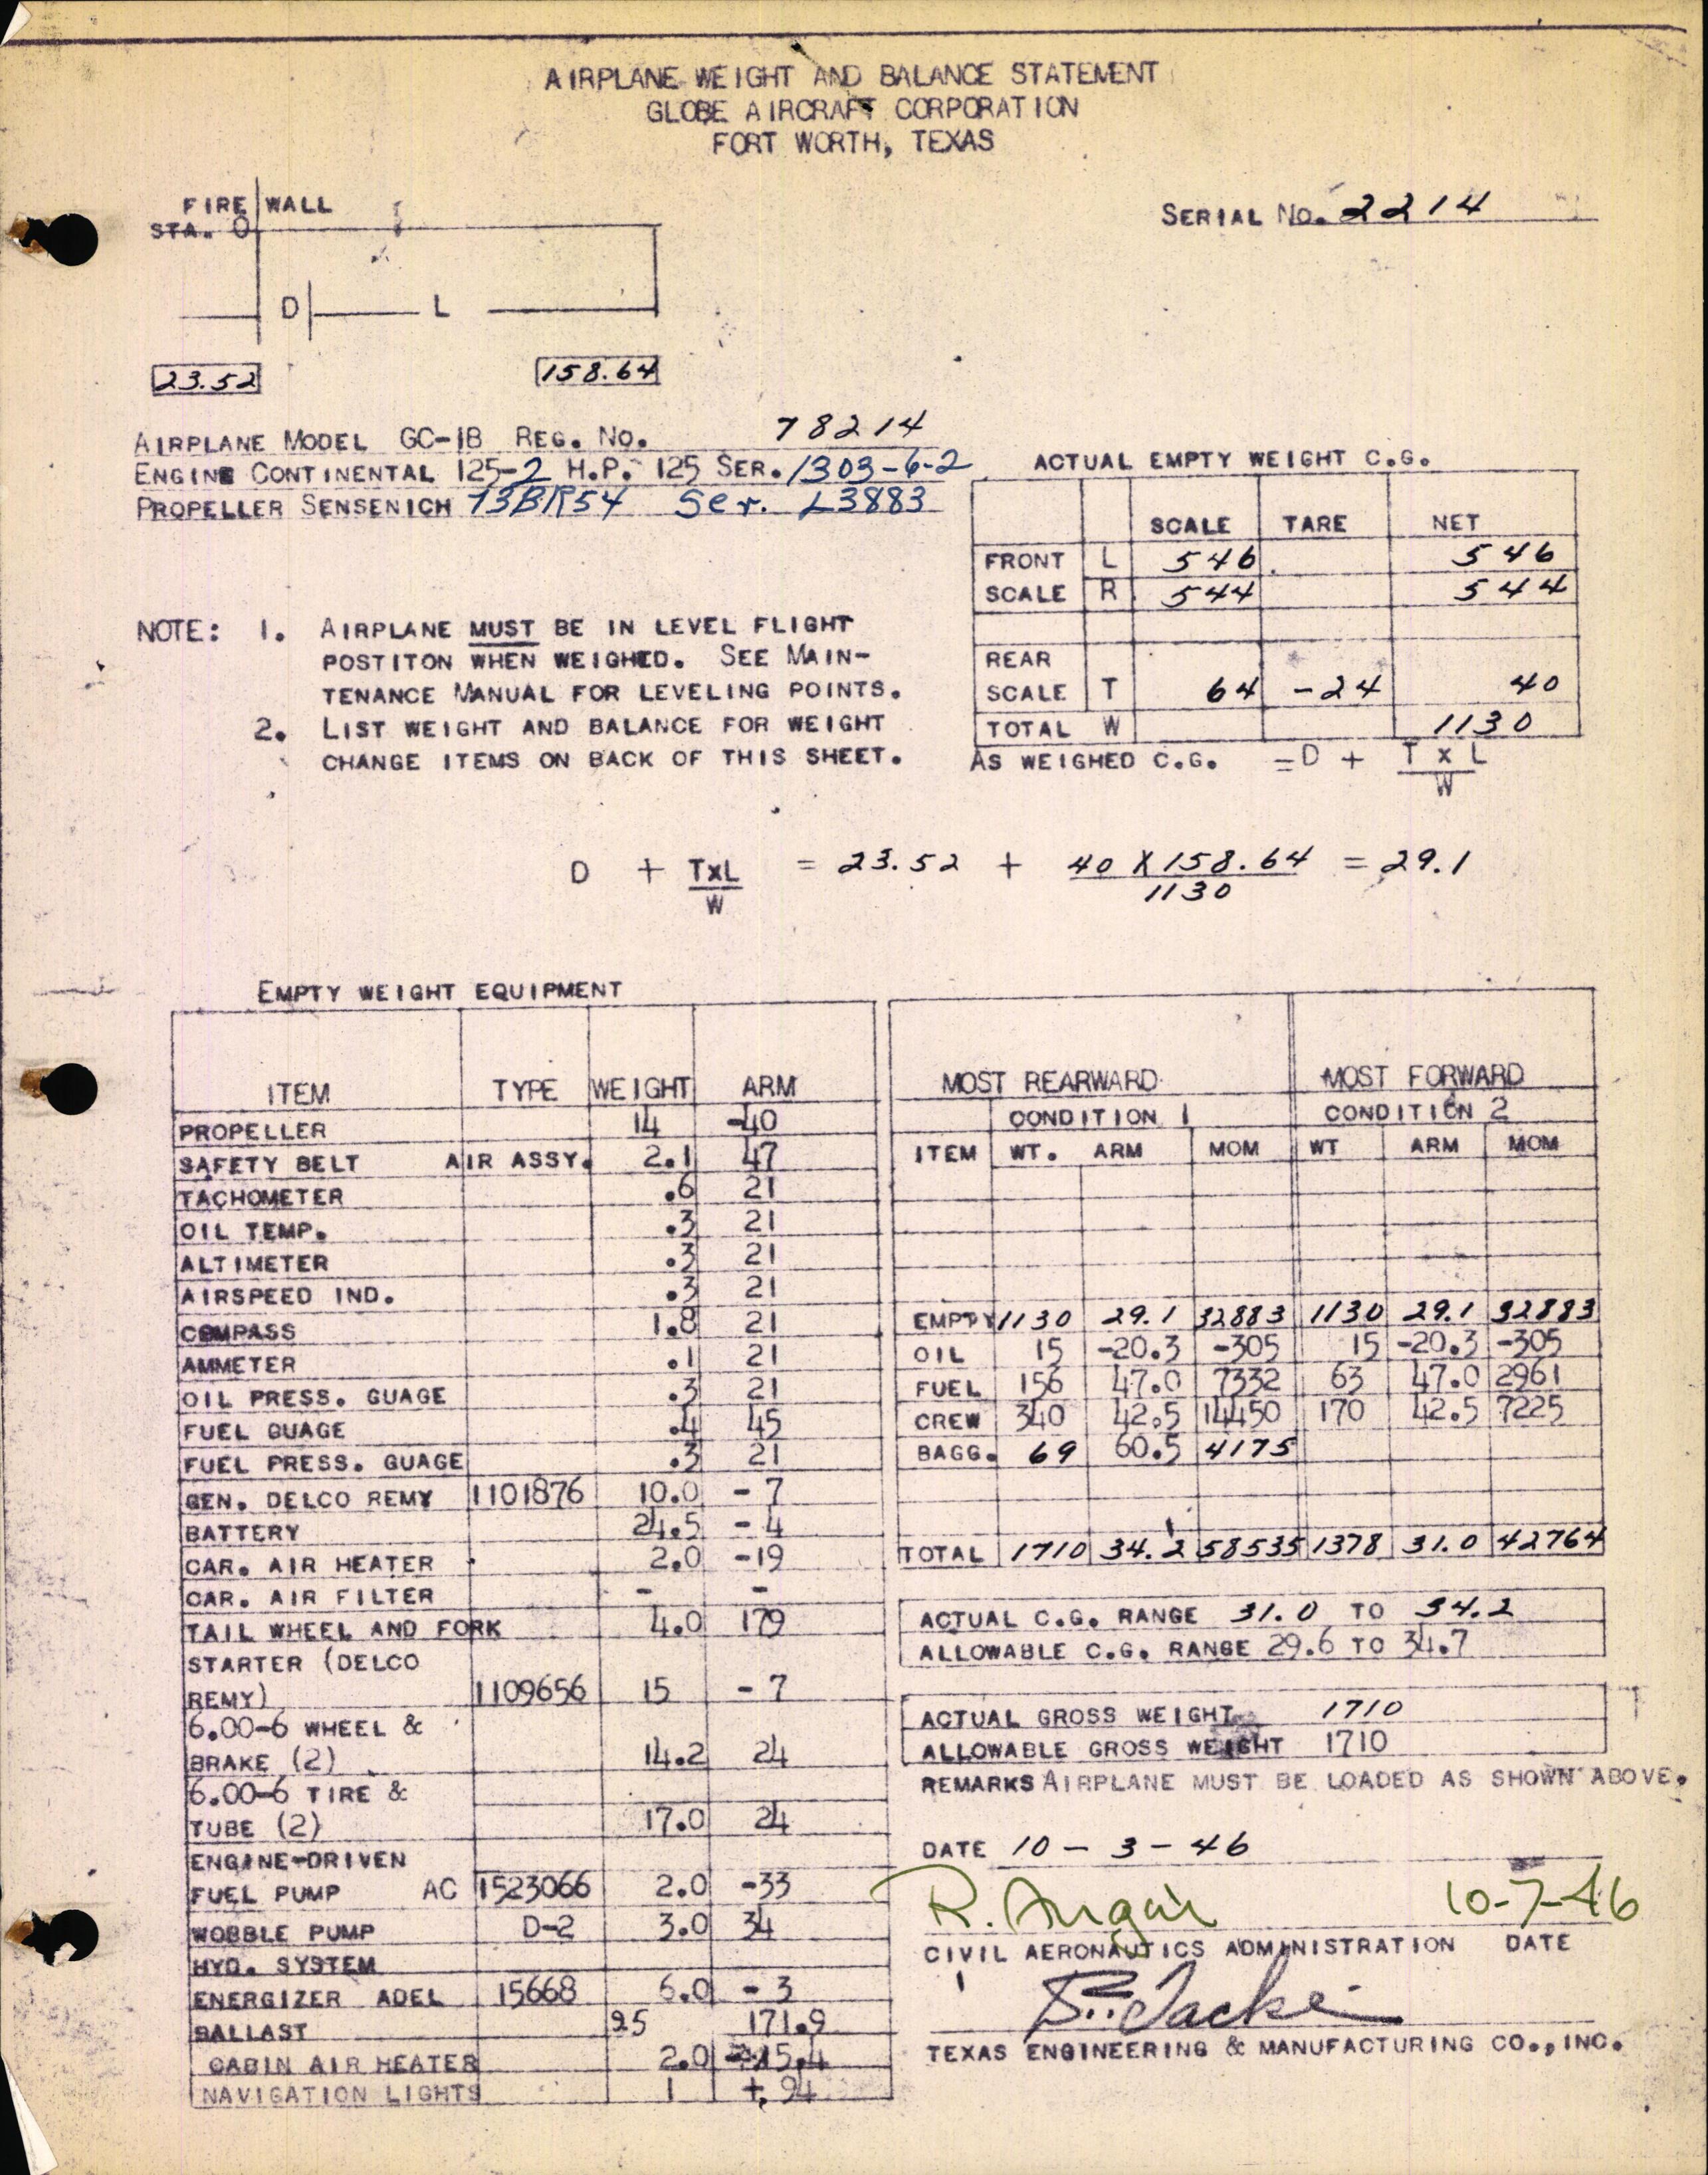 AIRPLANE WEIGHT AND BALANCE STATEMENT
GLOBE AIRCRAFT CORPORATION
FORT WORTH, TEXAS
FIRE WALL
STA. 0
SERIAL NO. 2214
D L
23.52 158.64
AIRPLANE MODEL GC-1B REG. NO. 78214
ENGINE CONTINENTAL 125-2 H.P. 125 SER. 1303-6-2
PROPELLER SENSENICH 73BR54 Ser. L3883
ACTUAL EMPTY WEIGHT C.G.
SCALE TARE NET
FRONT L 546 546
SCALE R 544 544
REAR
SCALE T 64 -24 40
TOTAL W 1130
AS WEIGHED C.G. = D + T x L
W
NOTE: 1. AIRPLANE MUST BE IN LEVEL FLIGHT
POSTITON WHEN WEIGHED. SEE MAIN-
TENANCE MANUAL FOR LEVELING POINTS.
2. LIST WEIGHT AND BALANCE FOR WEIGHT
CHANGE ITEMS ON BACK OF THIS SHEET.
D + TxL = 23.52 + 40 X 158.64 = 29.1
W 1130
EMPTY WEIGHT EQUIPMENT
ITEM TYPE WEIGHT ARM
PROPELLER 14 -40
SAFETY BELT AIR ASSY. 2.1 47
TACHOMETER .6 21
OIL TEMP. .3 21
ALTIMETER .3 21
AIRSPEED IND. .3 21
COMPASS 1.8 21
AMMETER .1 21
OIL PRESS. GUAGE .3 21
FUEL GUAGE .4 45
FUEL PRESS. GUAGE .3 21
GEN. DELCO REMY 1101876 10.0 - 7
BATTERY 24.5 - 4
CAR. AIR HEATER 2.0 -19
CAR. AIR FILTER - -
TAIL WHEEL AND FORK 4.0 179
STARTER (DELCO
REMY) 1109656 15 - 7
6.00-6 WHEEL &
BRAKE (2) 14.2 24
6.00-6 TIRE &
TUBE (2) 17.0 24
ENGINE-DRIVEN
FUEL PUMP AC 1523066 2.0 -33
WOBBLE PUMP D-2 3.0 34
HYD. SYSTEM
ENERGIZER ADEL 15668 6.0 - 3
BALLAST 171.9
CABIN AIR HEATER 2.0
NAVIGATION LIGHTS 1 +. 94
MOST REARWARD MOST FORWARD
CONDITION 1 CONDITION 2
ITEM WT. ARM MOM WT ARM MOM
EMPTY 1130 29.1 32883 1130 29.1 32883
OIL 15 -20.3 -305 15 -20.3 -305
FUEL 156 47.0 7332 63 47.0 2961
CREW 340 42.5 14450 170 42.5 7225
BAGG. 69 60.5 4175
TOTAL 1710 34.2 58535 1378 31.0 42764
ACTUAL C.G. RANGE 31.0 TO 34.2
ALLOWABLE C.G. RANGE 29.6 TO 34.7
ACTUAL GROSS WEIGHT 1710
ALLOWABLE GROSS WEIGHT 1710
REMARKS AIRPLANE MUST BE LOADED AS SHOWN ABOVE.
DATE 10 - 3 - 46
R. 10-7-46
CIVIL AERONAUTICS ADMINISTRATION DATE
TEXAS ENGINEERING & MANUFACTURING CO., INC.